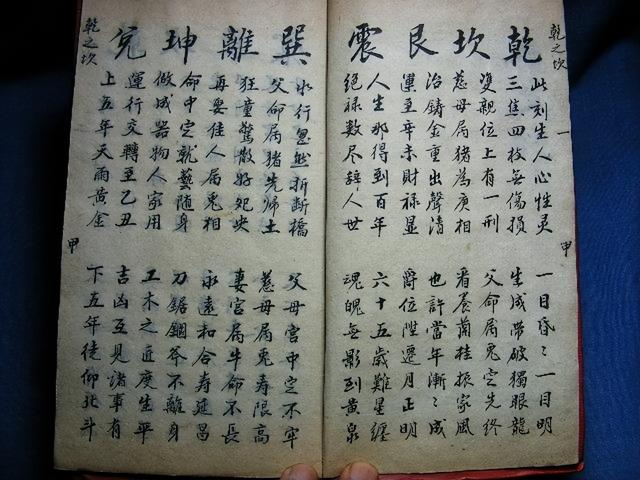 乾之坎
乾坎艮震
此刻生人心性灵
三焦四枝無傷損
雙親位上有一刑
慈母属猪為庚相
治鋳金重出聲清
運至辛未財禄显
人生那得到百年
絕禄数尽辞人世
一目昏〻一目明
生成带破獨眼龍
父命属兎定先终
看養蘭桂振家風
也許當年漸〻成
爵位陞遷月正明
六十五歲難星纏
魂魄無影到黄泉
一
甲
巽離坤兑
乾之坎
水行忽然折断橋
父命属猪先帰土
狂童驚散好
再娶佳人属兎相
命中定就藝随身
做成器物人家用
運行交轉至乙丑
上五年天雨黄金
父母宫中定不牢
慈母属兎寿限高
妻宫属牛命不長
永遠和合寿延昌
刀鋸錮斧不離身
工木之近度生平
吉凶互見诸事有
下五年徒仰北斗
甲